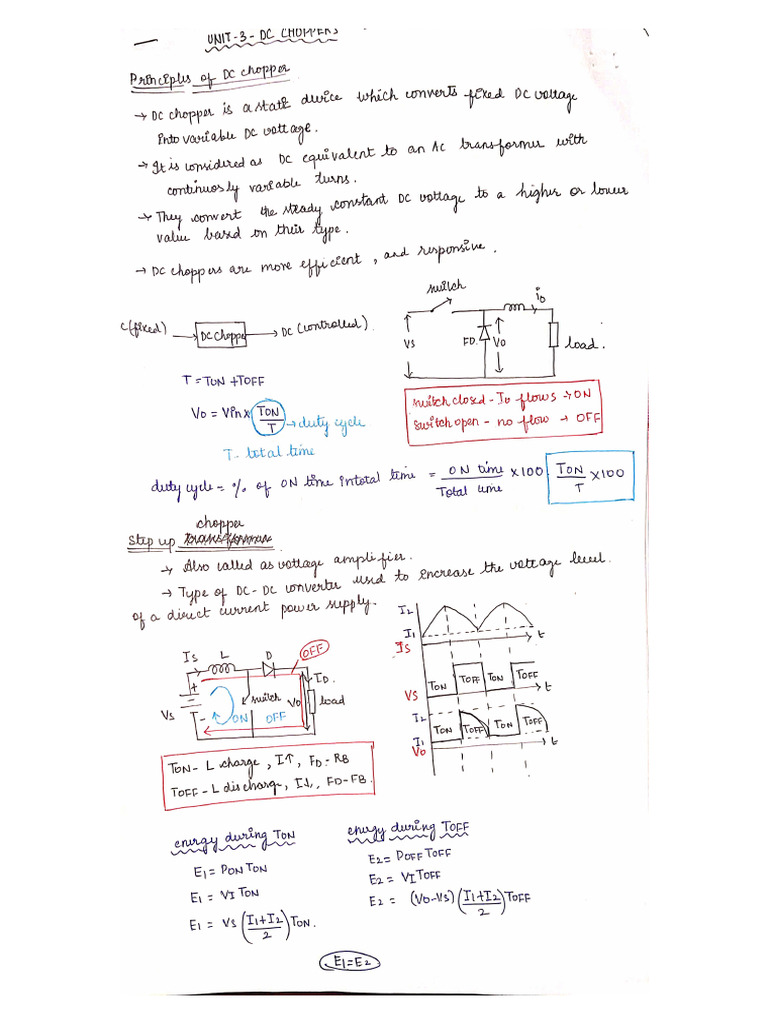 UNIT-3-DC CHOPPERS
Principles of DC chopper
→ DC chopper is a static device which converts fixed DC voltage
into variable DC voltage.
→ It is considered as DC equivalent to an AC transformer with
continuosly variable turns.
→ They convert the steady constant DC voltage to a higher or lower
value based on their type.
→ DC choppers are more efficient, and responsive.
switch
iO
C(fixed) → DC Chopper → DC (controlled).
VS
FD.
VO
load.
T = TON + TOFF
VO = Vin x TON/T → duty cycle
T - total time
switch closed - IO flows → ON
switch open - no flow → OFF
duty cycle = % of ON time in total time = ON time/Total time x 100 TON/T x 100
chopper
Step up
→ Also called as voltage amplifier.
→ Type of DC-DC converter used to increase the voltage level
of a direct current power supply.
IS L D OFF
IO.
+
VS
-
ON
switch
OFF
VO
load
I2
I1
IS
t
VS
TON TOFF TON TOFF
t
I2
I1
VO
TON TOFF TON TOFF
t
TON - L charge, I↑, FD - RB
TOFF - L discharge, I↓, FD - FB
energy during TON
E1 = PON TON
E1 = VI TON
E1 = VS (I1+I2/2) TON.
energy during TOFF
E2 = POFF TOFF
E2 = VI TOFF
E2 = (VO-VS) (I1+I2/2) TOFF
E1 = E2